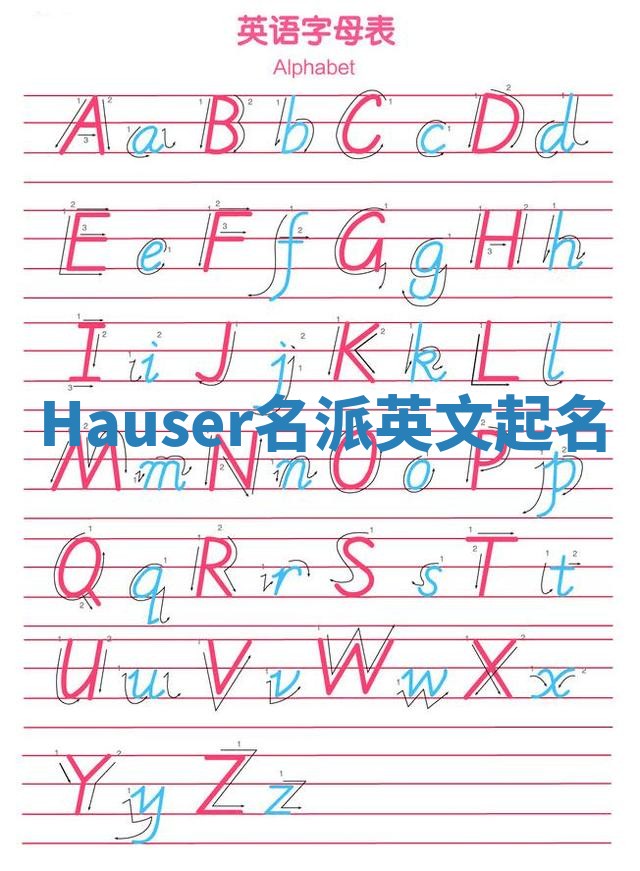 英语字母表
Alphabet
A a B b C c D d
E e F f G g H h
I i J j K k L l
Hauser名派英文起名
M m N n O o P p
Q q R r S s T t
U u V v W w X x
Y y Z z